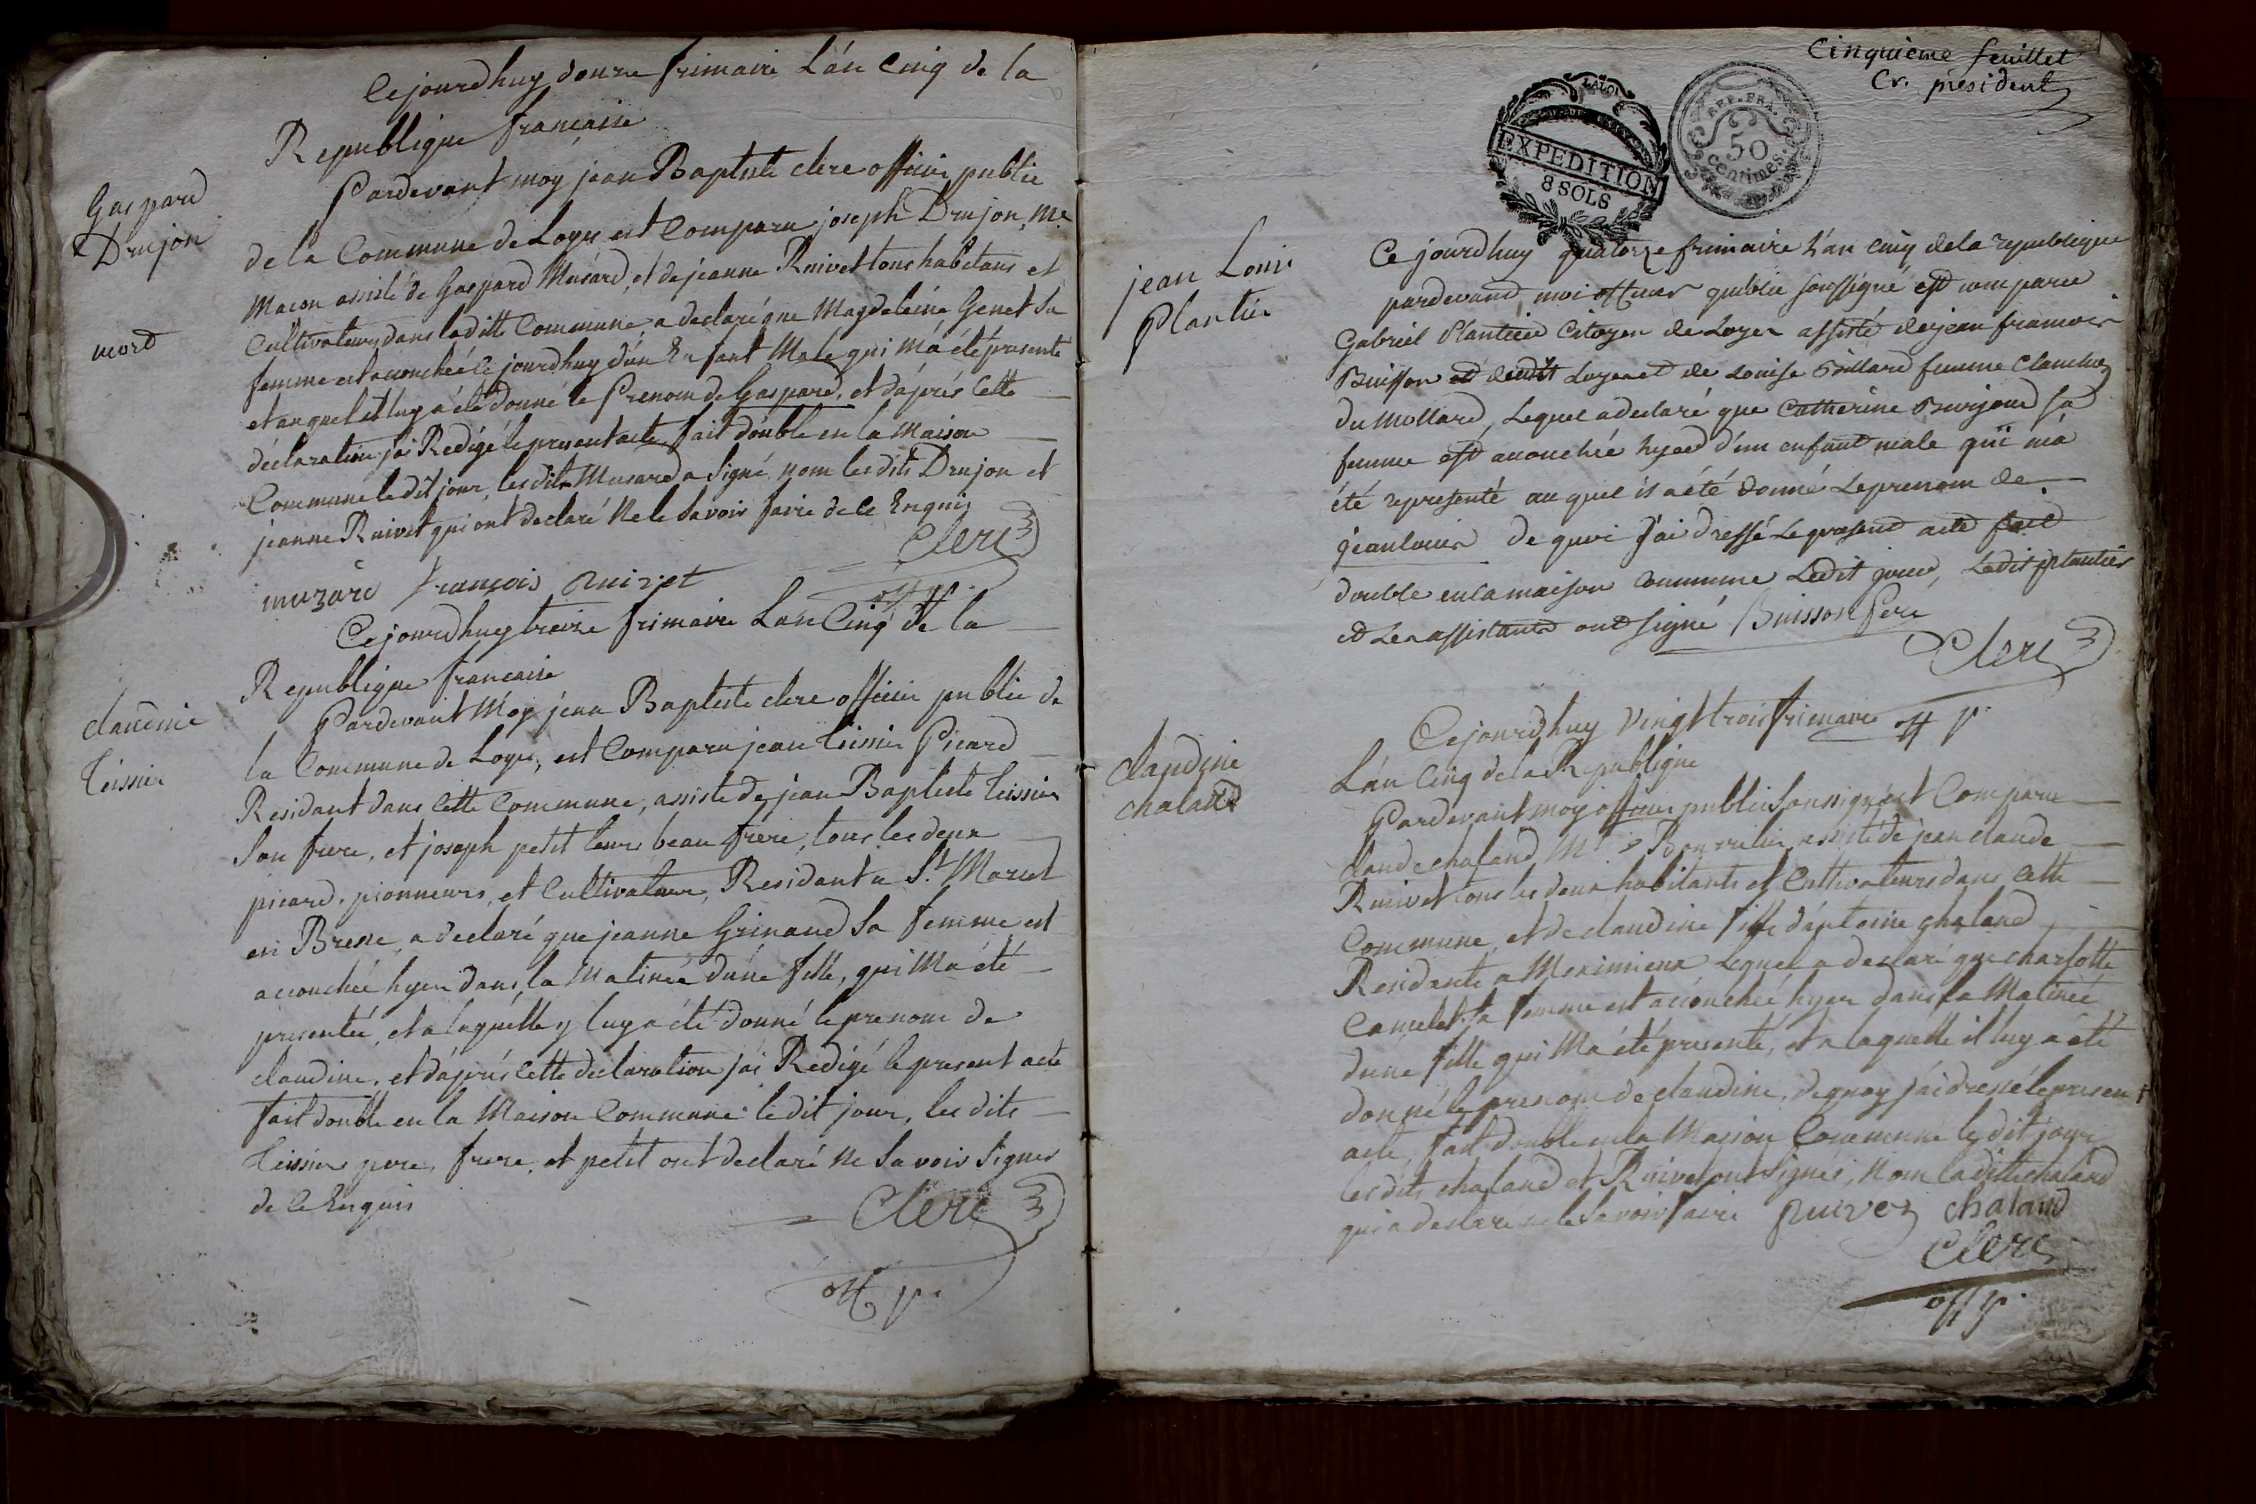 Cejourdhuy douze frimaire L'án Cinq de la
Republique francaise
Gaspard
Drujon
mort
Pardevant moy jean Baptiste clerc officier public
de la Commune de Loyes est Comparu joseph Drujon, Me
Macon assisté de Gaspard Musard, et de jeanne Ruivet tous habitans et
Cultivateurs dans laditte Commune, a declaré que Magdeleine Genet Sa
femme est accouchée Ce jourdhuy d'un Enfant Male qui m'a été présenté
et auquel il luy a été donné le Prenom de Gaspard, et d'aprés Cette
déclaration j'ai Redigé le present acte fait double en la Maison
Commune le dit jour, lesdits Musard a Signé nom les dits Drujon et
jeanne Ruivet qui ont declaré Ne le Savoir faire de ce Enquis
Clerc
muzard françois Ruivet
off p.
Cejourdhuy treize frimaire L'an Cinq de la
Republique francaise
claudine
teissier
Pardevant Moy jean Baptiste clerc officier public de
la Commune de Loyes, est Comparu jean teissier Picard
Residant dans Cette Commune, assisté de jean Baptiste teissier
Son frere, et joseph petit leurs beau frére, tous les deux
picard, pionneurs, et Cultivateurs, Residant a St Marcel
en Bresse, a declaré que jeanne Grinand Sa femme est
accouchée hyer dans la Matinée d'une fille, qui Ma été
presentée, et a laquelle y luy a été donné le prenom de
claudine, et d'aprés Cette declaration j'ai Redigé le present acte
fait double en la Maison Commune ledit jour, les dits
teissier pere, frere, et petit ont declaré ne Savoir Signer
de ce Enquis
Clerc
off p.
Cinquième feuillet
Cr. président
LA LOI
EXPEDITION
8 SOLS
REP. FRA.
50
Centimes
jean Louis
Plantier
Ce jourdhuy quatorze frimaire L'an cinq de la republique
pardevant moi officier publie soussigné est comparu
Gabriel Plantier Citoyen de Loyes assisté de jean francois
Buisson et Loyes et de Louise femme Claude
du Mollard, Lequel a declaré que Catherine Sa
femme est accouchée hyer d'un enfant male qui m'a
été representé au quel il a été donné Le prenom de
jeanlouis de quoi j'ai dressé Le present acte fait
double en la maison commune Ledit jour, Ledit plantier
et Les assistants ont signé Buisson pere
Clerc
off p.
claudine
chaland
Cejourdhuy vingt trois frimaire
L'an Cinq de la Republique
Pardevant moy officier public Soussigné est Comparu
claude chaland, Me assisté de jean claude
Ruivet tous les deux habitants et Cultivateurs dans Cette
Commune, et de claudine fille d'antoine chaland
Residante a Meximieux Lequel a declaré que charlotte
Camelet Sa femme est accouchée hyer dans la Matinée
d'une fille qui M'a été presenté, et a laquelle il luy a été
donné le prenom de claudine, de quoy j'ai dressé le present
acte, fait double en la Maison Commune le dit jour
les dits chaland et Ruivet ont Signés, Nom laditte chaland
qui a declaré ne le Savoir faire Ruivet chaland
Clerc
off p.